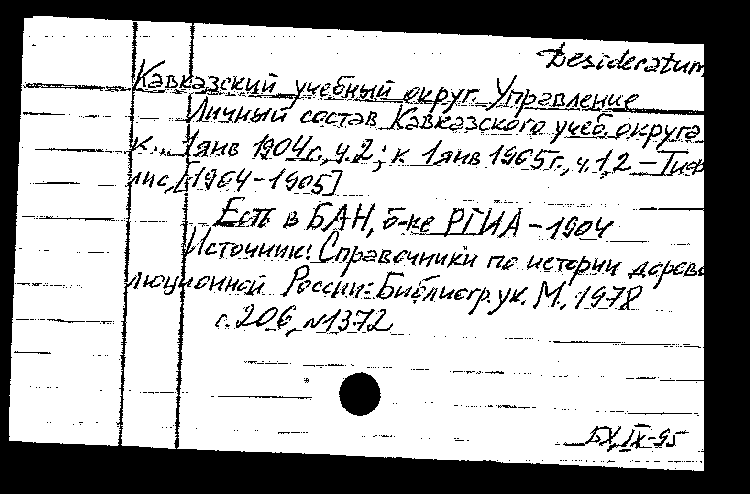 Desideratum
Кавказский учебный округ. Управление
Личный состав Кавказского учеб. округа
к... 1 янв 1904 г., ч. 2; к 1 янв 1905 г., ч. 1, 2 – Тиф
лис, [1904-1905]
Есть в БАН, б-ке РГИА - 1904
Источник: Справочники по истории дорево
люционной России: Библиогр. ук. М., 1978
с. 206, №1372
БХ, IX-95